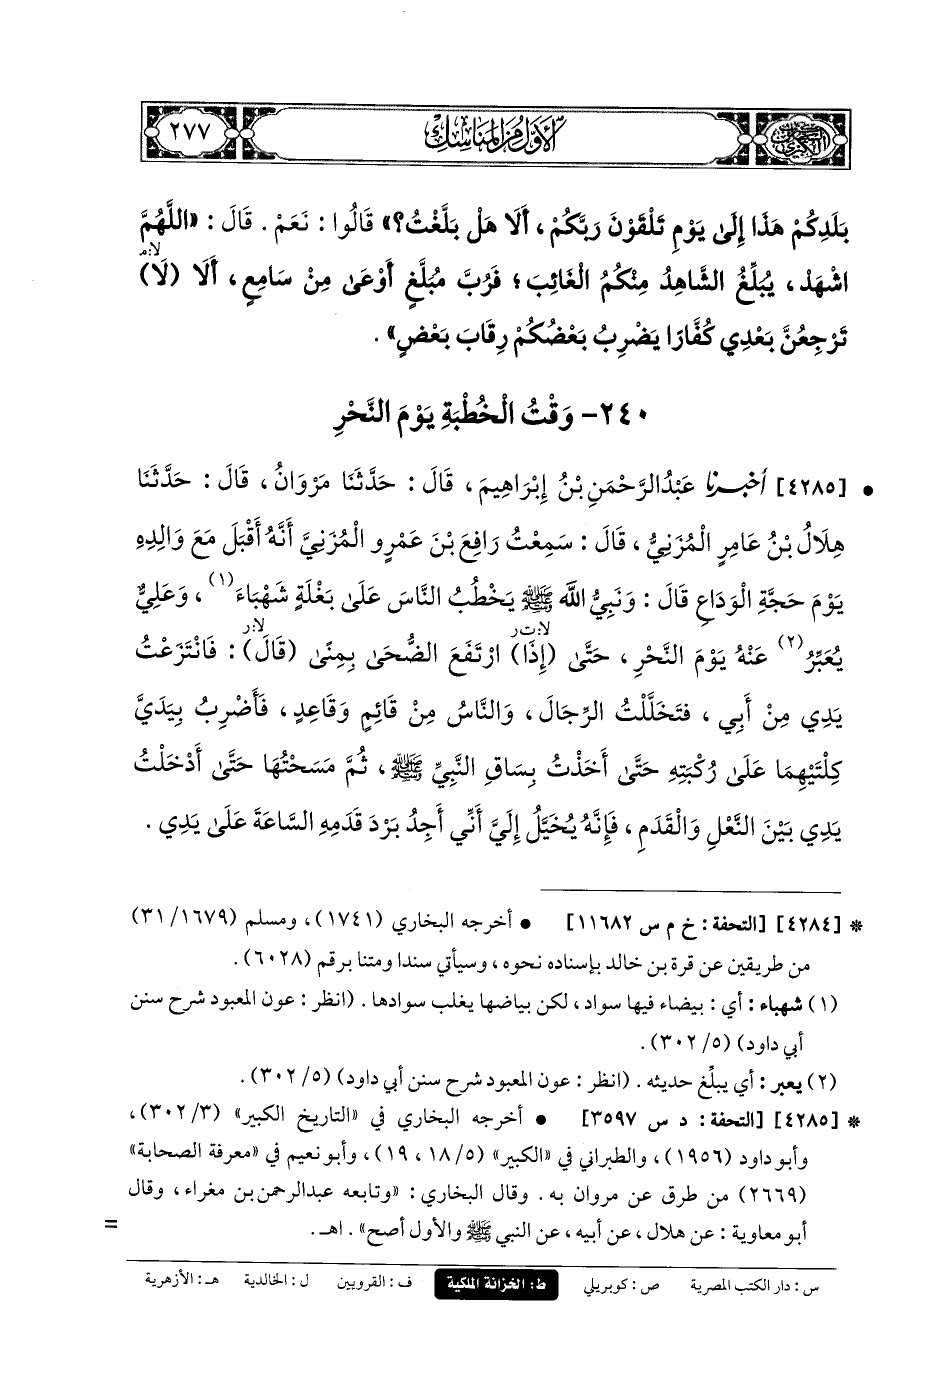 ٢٧٧
الأول من المناسك
السنن الكبرى
بَلَدِكُمْ هَذَا إِلَى يَوْمِ تَلْقَوْنَ رَبَّكُمْ، أَلَا هَلْ بَلَّغْتُ؟» قَالُوا: نَعَمْ. قَالَ: «اللَّهُمَّ
اشْهَدْ، يُبَلِّغُ الشَّاهِدُ مِنْكُمُ الْغَائِبَ؛ فَرُبَّ مُبَلَّغٍ أَوْعَى مِنْ سَامِعٍ، أَلَا (لَا)
تَرْجِعُنَّ بَعْدِي كُفَّارًا يَضْرِبُ بَعْضُكُمْ رِقَابَ بَعْضٍ».
٢٤٠- وَقْتُ الْخُطْبَةِ يَوْمَ النَّحْرِ
• [٤٢٨٥] أخبرنا عَبْدُالرَّحْمَنِ بْنُ إِبْرَاهِيمَ، قَالَ: حَدَّثَنَا مَرْوَانُ، قَالَ: حَدَّثَنَا
هِلَالُ بْنُ عَامِرٍ الْمُزَنِيُّ، قَالَ: سَمِعْتُ رَافِعَ بْنَ عَمْرٍو الْمُزَنِيَّ أَنَّهُ أَقْبَلَ مَعَ وَالِدِهِ
يَوْمَ حَجَّةِ الْوَدَاعِ قَالَ: وَنَبِيُّ اللَّهِ ﷺ يَخْطُبُ النَّاسَ عَلَى بَغْلَةٍ شَهْبَاءَ(١)، وَعَلِيٌّ
يُعَبِّرُ(٢) عَنْهُ يَوْمَ النَّحْرِ، حَتَّى (إِذَا) ارْتَفَعَ الضُّحَى بِمِنًى (قَالَ): فَانْتَزَعْتُ
يَدِي مِنْ أَبِي، فَتَخَلَّلْتُ الرِّجَالَ، وَالنَّاسُ مِنْ قَائِمٍ وَقَاعِدٍ، فَأَضْرِبُ بِيَدَيَّ
كِلْتَيْهِمَا عَلَى رُكْبَتِهِ حَتَّى أَخَذْتُ بِسَاقِ النَّبِيِّ ﷺ، ثُمَّ مَسَحْتُهَا حَتَّى أَدْخَلْتُ
يَدِي بَيْنَ النَّعْلِ وَالْقَدَمِ، فَإِنَّهُ يُخَيَّلُ إِلَيَّ أَنِّي أَجِدُ بَرْدَ قَدَمِهِ السَّاعَةَ عَلَى يَدِي.
* [٤٢٨٤] [التحفة: خ م س ١١٦٨٢] • أخرجه البخاري (١٧٤١)، ومسلم (١٦٧٩/ ٣١)
من طريقين عن قرة بن خالد بإسناده نحوه، وسيأتي سندا ومتنا برقم (٦٠٢٨).
(١) شهباء: أي: بيضاء فيها سواد، لكن بياضها يغلب سوادها. (انظر: عون المعبود شرح سنن
أبي داود) (٥/ ٣٠٢).
(٢) يعبر: أي يبلِّغ حديثه. (انظر: عون المعبود شرح سنن أبي داود) (٥/ ٣٠٢).
* [٤٢٨٥] [التحفة: د س ٣٥٩٧] • أخرجه البخاري في «التاريخ الكبير» (٣/ ٣٠٢)،
وأبو داود (١٩٥٦)، والطبراني في «الكبير» (٥/ ١٨، ١٩)، وأبو نعيم في «معرفة الصحابة»
(٢٦٦٩) من طرق عن مروان به. وقال البخاري: «وتابعه عبدالرحمن بن مغراء، وقال
أبو معاوية: عن هلال، عن أبيه، عن النبي ﷺ والأول أصح». اهـ. =
س: دار الكتب المصرية ص: كوبريلي ط: الخزانة الملكية ف: القرويين ل: الخالدية هـ: الأزهرية